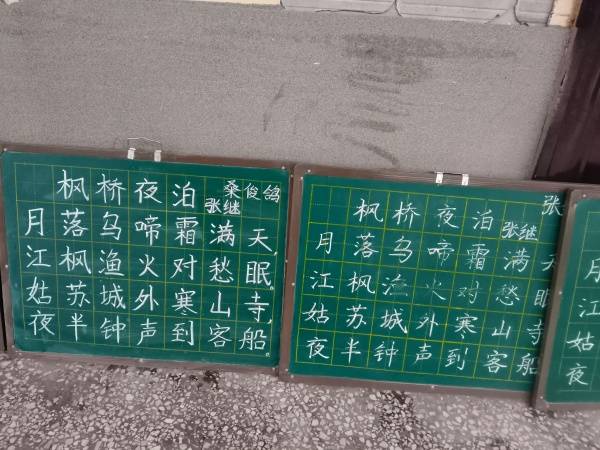 枫桥夜泊 桑俊鸽
张继
月落乌啼霜满天
江枫渔火对愁眠
姑苏城外寒山寺
夜半钟声到客船
枫桥夜泊 张
张继
月落乌啼霜满天
江枫渔火对愁眠
姑苏城外寒山寺
夜半钟声到客船
月
江
姑
夜